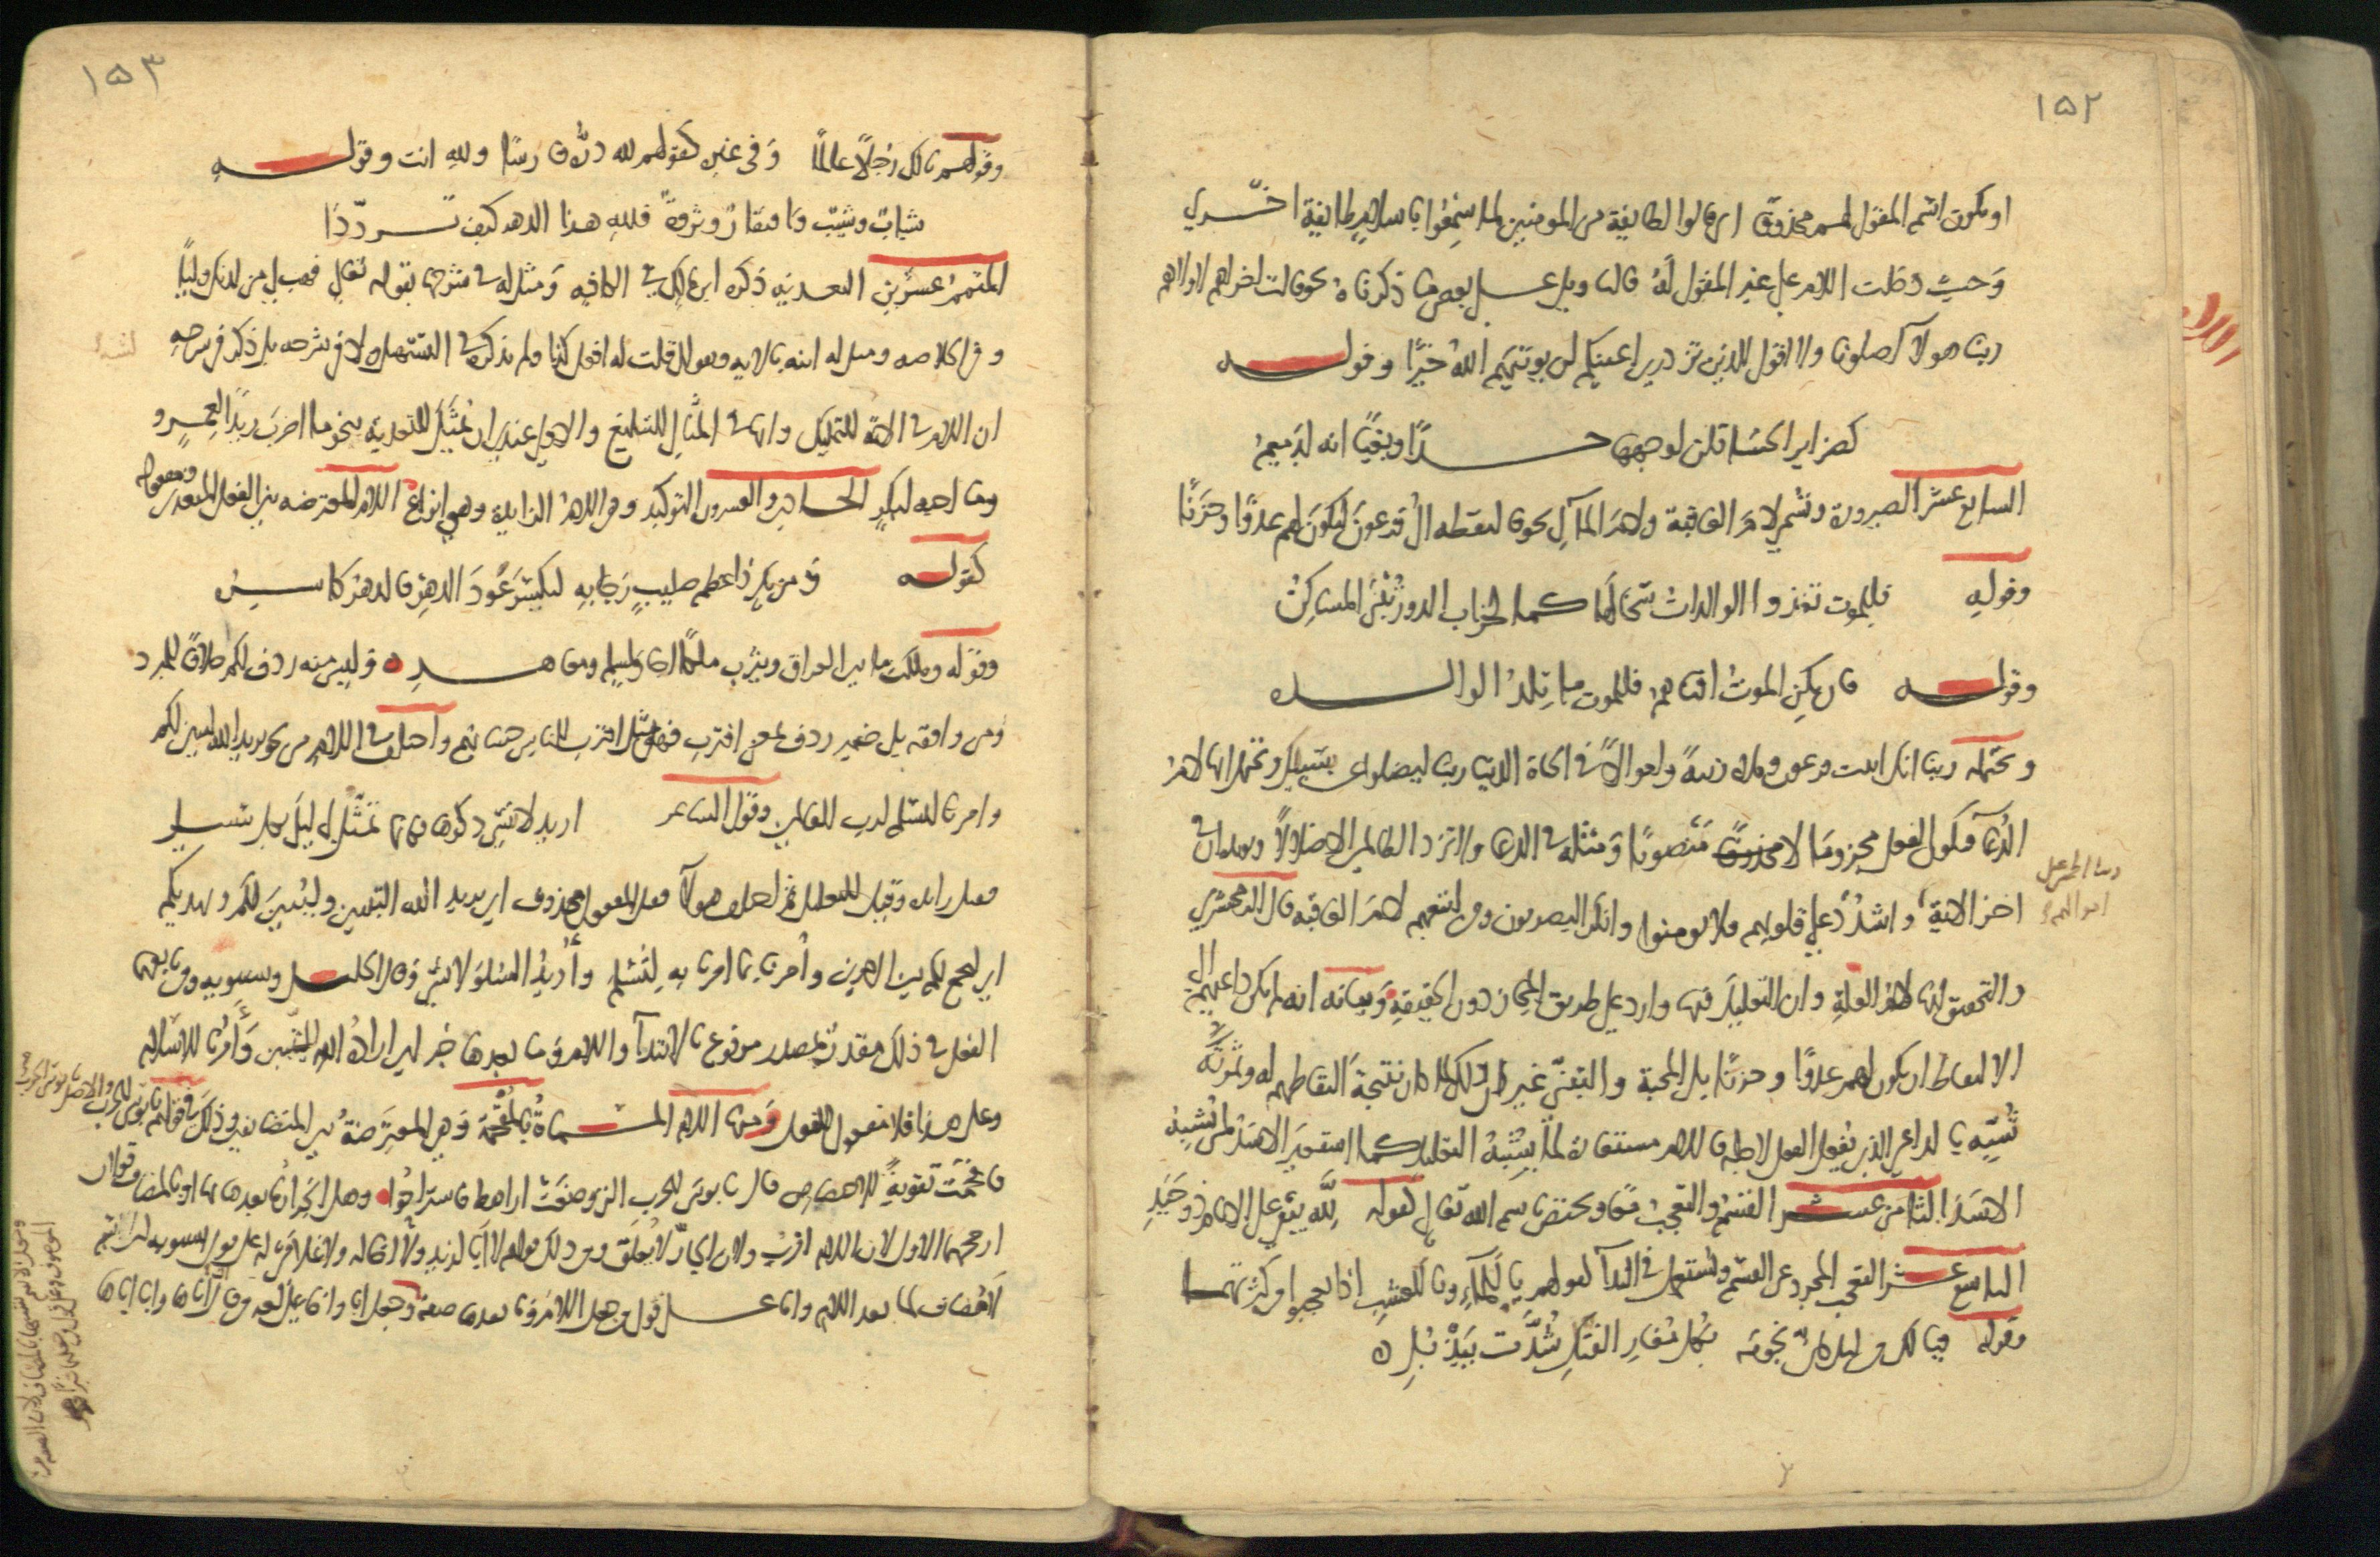 ١٥٢
او يكون اسم المقول لهم محذوفًا اى قالوا لطايفة من المومنين لما سمعوا باسلام طايفة اخرى
وَحيث دخلت اللام على غير المقول لَهُ فالتاويل على بعض ما ذكرناهُ نحو قالت اخراهم لاولاهم
ربنا هولآ اضلونا ولا اقول للذين تزدرى اعينكم لن يوتيهم اللهُ خيرًا وقوله
كضراير الحسنا قلن لوجهها حسدًا وبغيًا انه لدَميمُ
السابع عشر الصيرورة وتسمى لامَ العاقبة ولامَ المآلِ نحو فالتقطه الُ فرعونَ ليكونَ لهم عدوًا وحزَنًا
وقولِهِ فللموت تغذوا الوالداتُ سخالَها كما لخراب الدور تُبْنَى المساكِنُ
وقوله فان يكنِ الموتُ افناهمُ فللموت ما تَلِدُ الوالده
ويحتمله ربنا انك اتيت فرعون وملاه زينةً واموالاً فى الحياة الدنيا ربنا ليضلوا عن سبيلك ويحتمل انها لامُ
الدُعآ فيكون الفعل مجزومًا لا منصوبًا وَمثلُهُ فى الدعا ولا تزد الظالمين الا ضلالاً ويويده ان فى
اخر الاية واشدُد على قلوبهم فلا يومنوا وانكر البصريون ومن تابعهم لامَ العاقبه قال الزمخشرى
والتحقيق انها لامُ العلةِ وان التعليلَ فيها وارد على طريق المجاز دون الحقيقةِ وَبيانه انه لم يكن داعيهم الى
الالتقاط ان يكون لهم عدوًا وحزنًا بل المحبة والتبنّى غير ان ذلك لما كان نتيجةَ التقاطهم له وثمرتَه
شُبِّه بالداعى الذى يُفعل الفعل لاجله فاللام مستعارة لما يُشْبهُ التعليلَ كما استعيرَ الاسدُ لمن يُشبِهُ
الاسَدَ الثامن عشر القسَمُ والتعجبُ معًا ويختص باسم الله تعالى كقوله لِلّه يبقى على الايام ذو حَيَدٍ
التاسع عشر التعجب المجرد عن القسم ويُستعمل فى الندآ كقولهم يا لَلمآءِ ويا لَلعشبِ اذا تعجبوا من كثرتهما
وقوله فيا لك من ليل كانّ نجومَه بكل مُغارِ الفتلِ شُدَّت بيَذْبُلِ ٥
١٥٣
وقولهم يا لك رجُلاً عالمًا وَفى غيره كقولهم لله دَرُّه فارسًا ولله انت وقوله
شبابٌ وشيبٌ وافتقارٌ وثروةٌ فللهِ هذا الدهر كيف تردّدَا
المتممُ عشرين التعديَه ذَكره ابن مالك فى الكافيه وَمثل له فى شرحها بقوله تعالى فهب لى من لدنك وليًا
وفى الخلاصه ومثل له ابنه بالايه وبقولك قلت له افعل كذا ولم يذكره فى التسهيل ولا فى شرحه بل ذكر فى شرحه
ان اللام فى الاية للتمليك وانها فى المثالِ للتبليغ والاولى عندى ان يُمَثَّلَ للتعدية بنحو ما اضرَبَ زيدًا لعمرٍو
وما احبه لبكرٍ الحادى والعشرون التوكيد وهى اللامُ الزايدة وهى انواعٌ اللام المعترضه بين الفعل المتعدى ومفعوله
كقوله وَمن يكُ ذا عظم صليبٍ رَجا به ليكسِرَ عُودَ الدهرِ فالدهرُ كاسرُه
وقوله وملكت ما بين العراق ويثرب ملكًا اجار لمسلم ومعاهدِ ٥ وَليس منه ردف لكم خلافًا للمبرد
ومن وافقه بل ضمير ردف لمعنى اقترب فهو مثل اقترب للناس حسابُهم واختلف فى اللام من نحو يريد الله ليبين لكم
وامرنا لنسلم لرب العالمين وقول الشاعر اريد لانسى ذكرها فكانما تمثّلُ لى ليلَى بكل سبيلِ
فقيل زايده وقيل للتعليل ثم اختلف هولآ فقيل المفعول محذوف اى يريد الله التبيين وليُبَيِنَ لكم ويهديكم
اى ليجمع لكم بين الامرين وأمرنا بما امرنا به لِنُسْلِمَ وأُريدُ السُلوَ لانسَى وَقال الخليل وسيبويه ومن تابعهما
الفعل فى ذلك مقدرٌ بمصدر مرفوع بالابتدآ واللام وَما بعدها خبر اى ارادةُ الله للتبيين وَأَمْرُنا للاسلام
وعلى هذا فلا مفعول للفعل وَمنها اللام المسماةُ بالمُقْحَمَة وَهى المعترضة بين المتضايفين وذلك فى قولهم يا بوسَ للحرب والاصل يا بوسَ الحرب
فاقحمت تقويةً للاختصاص قال يا بوسَ للحرب التى وضعَتْ اراهط فاستراحوا وهل انجرارُ ما بعدها بها او بالمضاف قولان
ارجحهما الاول لان اللام اقربُ ولان الجارّ لا يُعلَّق ومن ذلك قولهم لا اَبا لزيدٍ ولا اخا له ولا غلامَى له على قول سيبويه ان اسم
لا مضاف لما بعد اللام واما على قول من جعل اللامَ وَما بعدها صفةً وجعل ابا واخا على لُغه من قال ان اباها وابا اباها